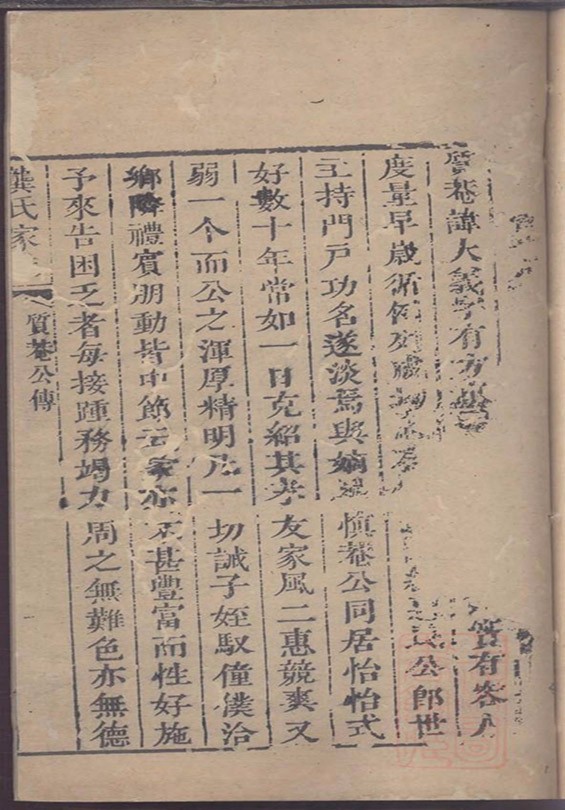 質菴諱大義字有方 質有容人
度量早歲循例 公卽世
主持門戶功名遂淡焉與嫡 慎菴公同居怡怡式
好數十年常如一日克紹其孝友家風二惠競爽又
弱一个而公之渾厚精明凡一切誡子姪馭僮僕洽
鄉隣禮賓朋動皆中節云家亦不甚豐富而性好施
予來告困乏者每接踵務竭力周之無難色亦無德
龔氏家 質菴公傳